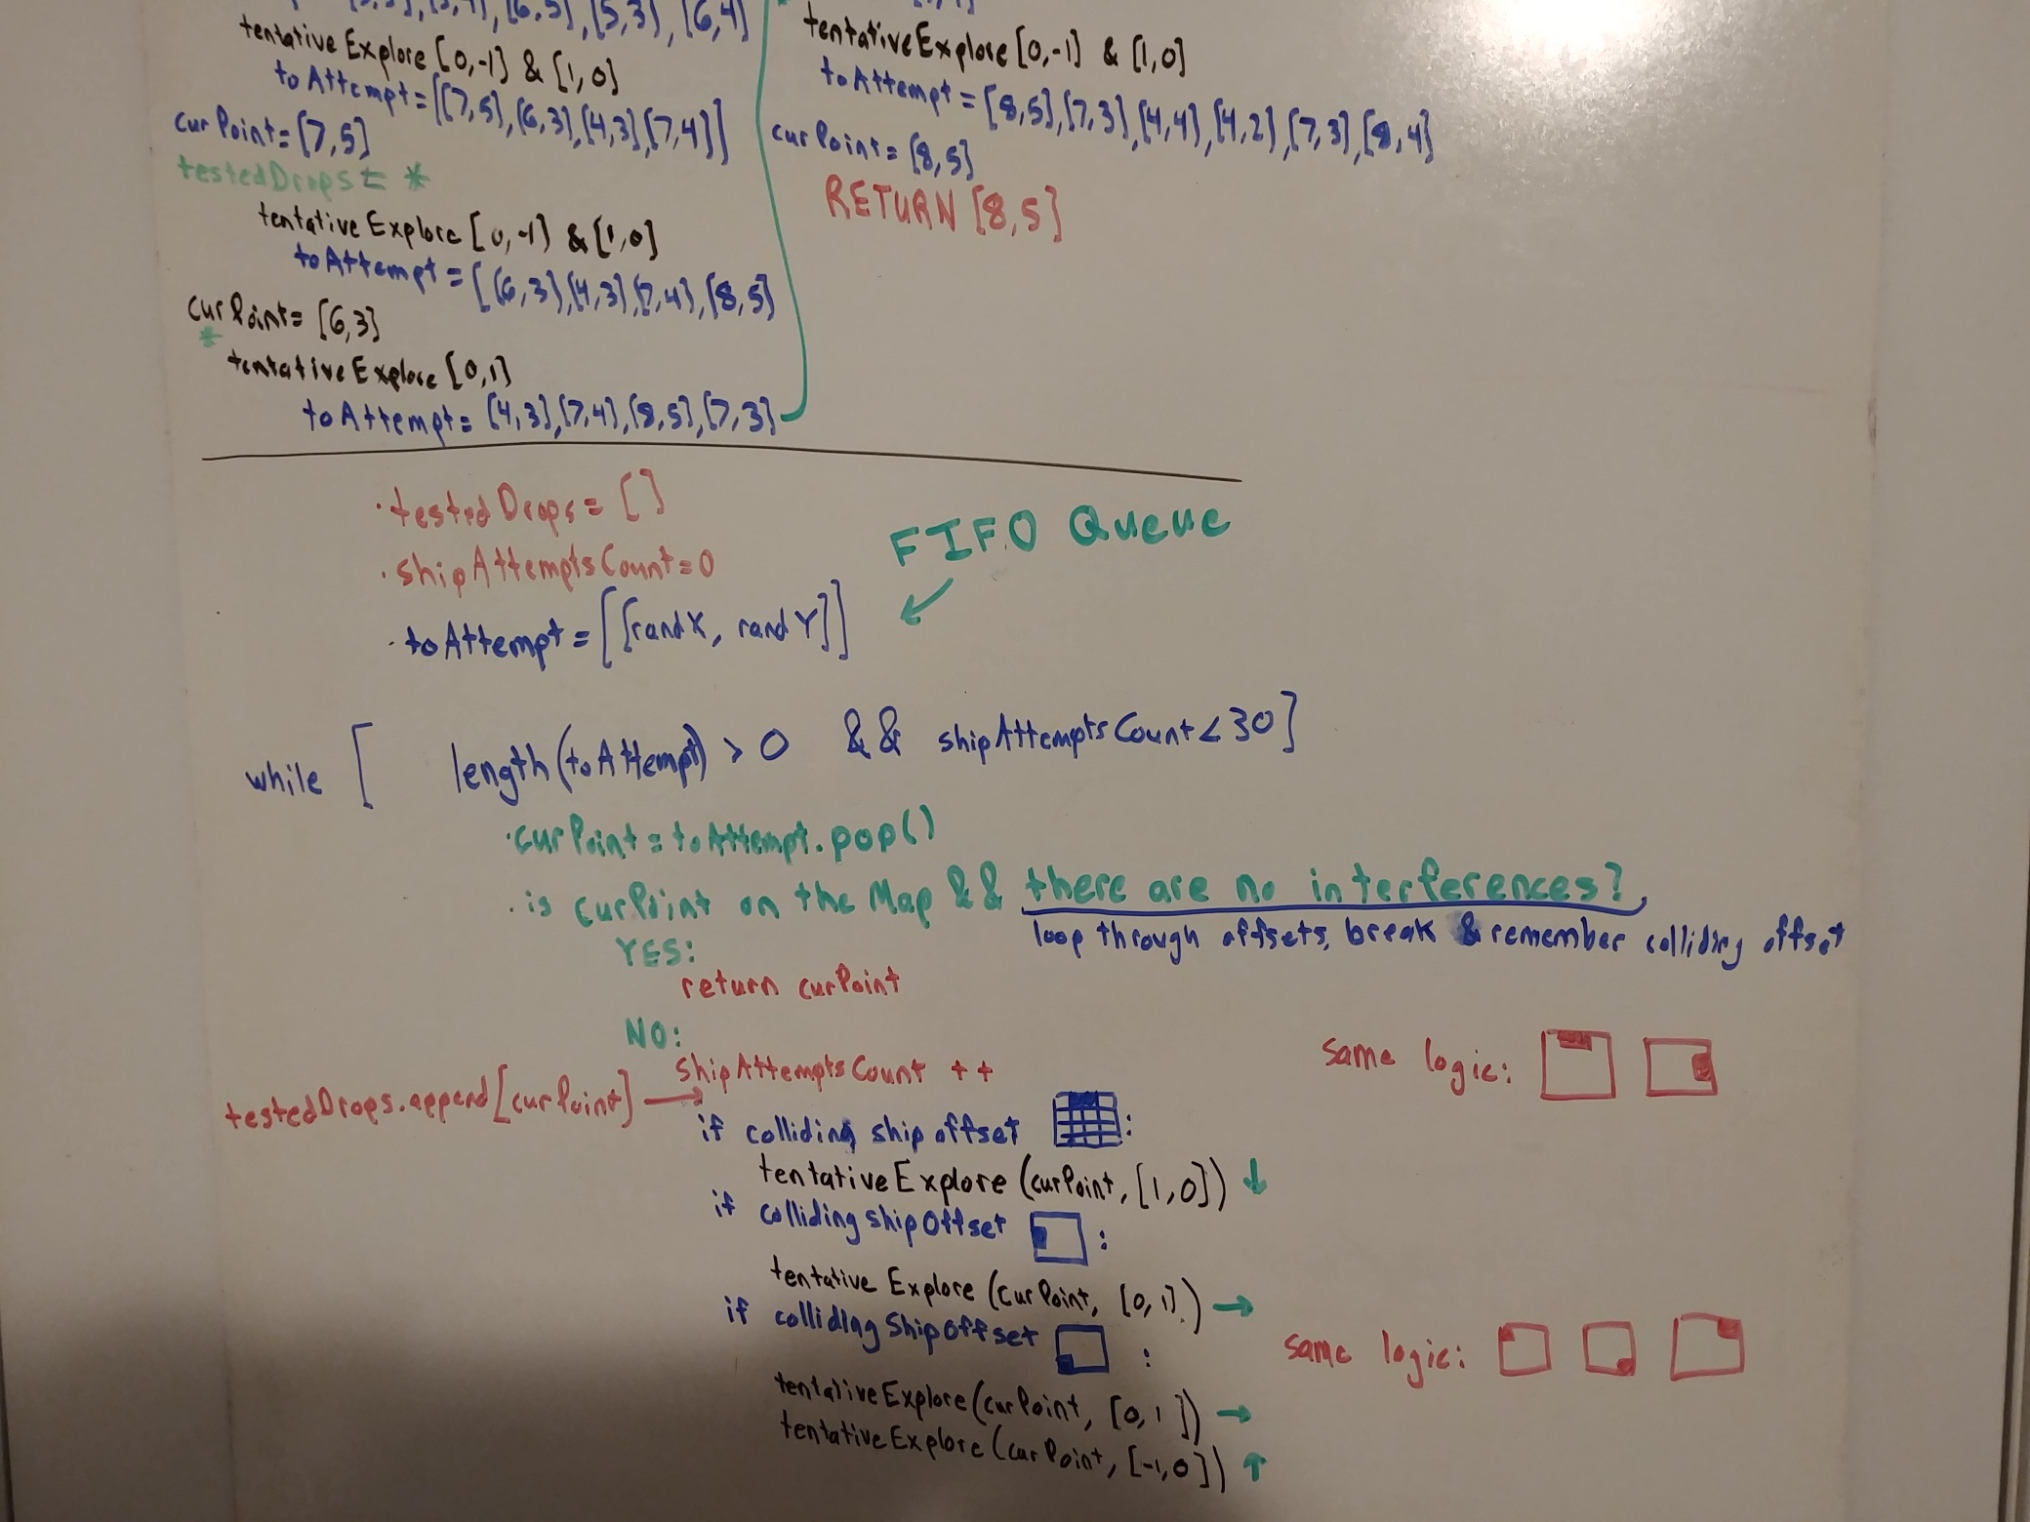 [5,3], [6,4]
tentativeExplore [0,-1] & [1,0]
toAttempt=[[7,5],[6,3],[4,3],[7,4]]
curPoint=[7,5]
testedDrops = *
tentativeExplore [0,-1] & [1,0]
toAttempt = [[6,3],[4,3],[7,4],[8,5]
curPoint= [6,3]
*
tentativeExplore [0,1]
toAttempt= [4,3],[7,4],[8,5],[7,3]
tentativeExplore [0,-1] & [1,0]
toAttempt = [8,5],[7,3],[4,4],[4,2],[7,3],[8,4]
curPoint= [8,5]
RETURN [8,5]
· testedDrops = []
· shipAttemptsCount=0
FIFO Queue
· toAttempt = [[randX, randY]]
while [ length(toAttempt) > 0 && shipAttemptsCount < 30]
· curPoint = toAttempt.pop()
· is curPoint on the Map && there are no interferences?
loop through offsets, break & remember colliding offset
YES:
return curPoint
NO:
shipAttemptsCount ++
testedDrops.append[curPoint]
same logic:
if colliding ship offset :
tentativeExplore (curPoint, [1,0])
if colliding shipOffset :
tentativeExplore (curPoint, [0,1])
if colliding ShipOffset :
same logic:
tentativeExplore (curPoint, [0,1])
tentativeExplore (curPoint, [-1,0])